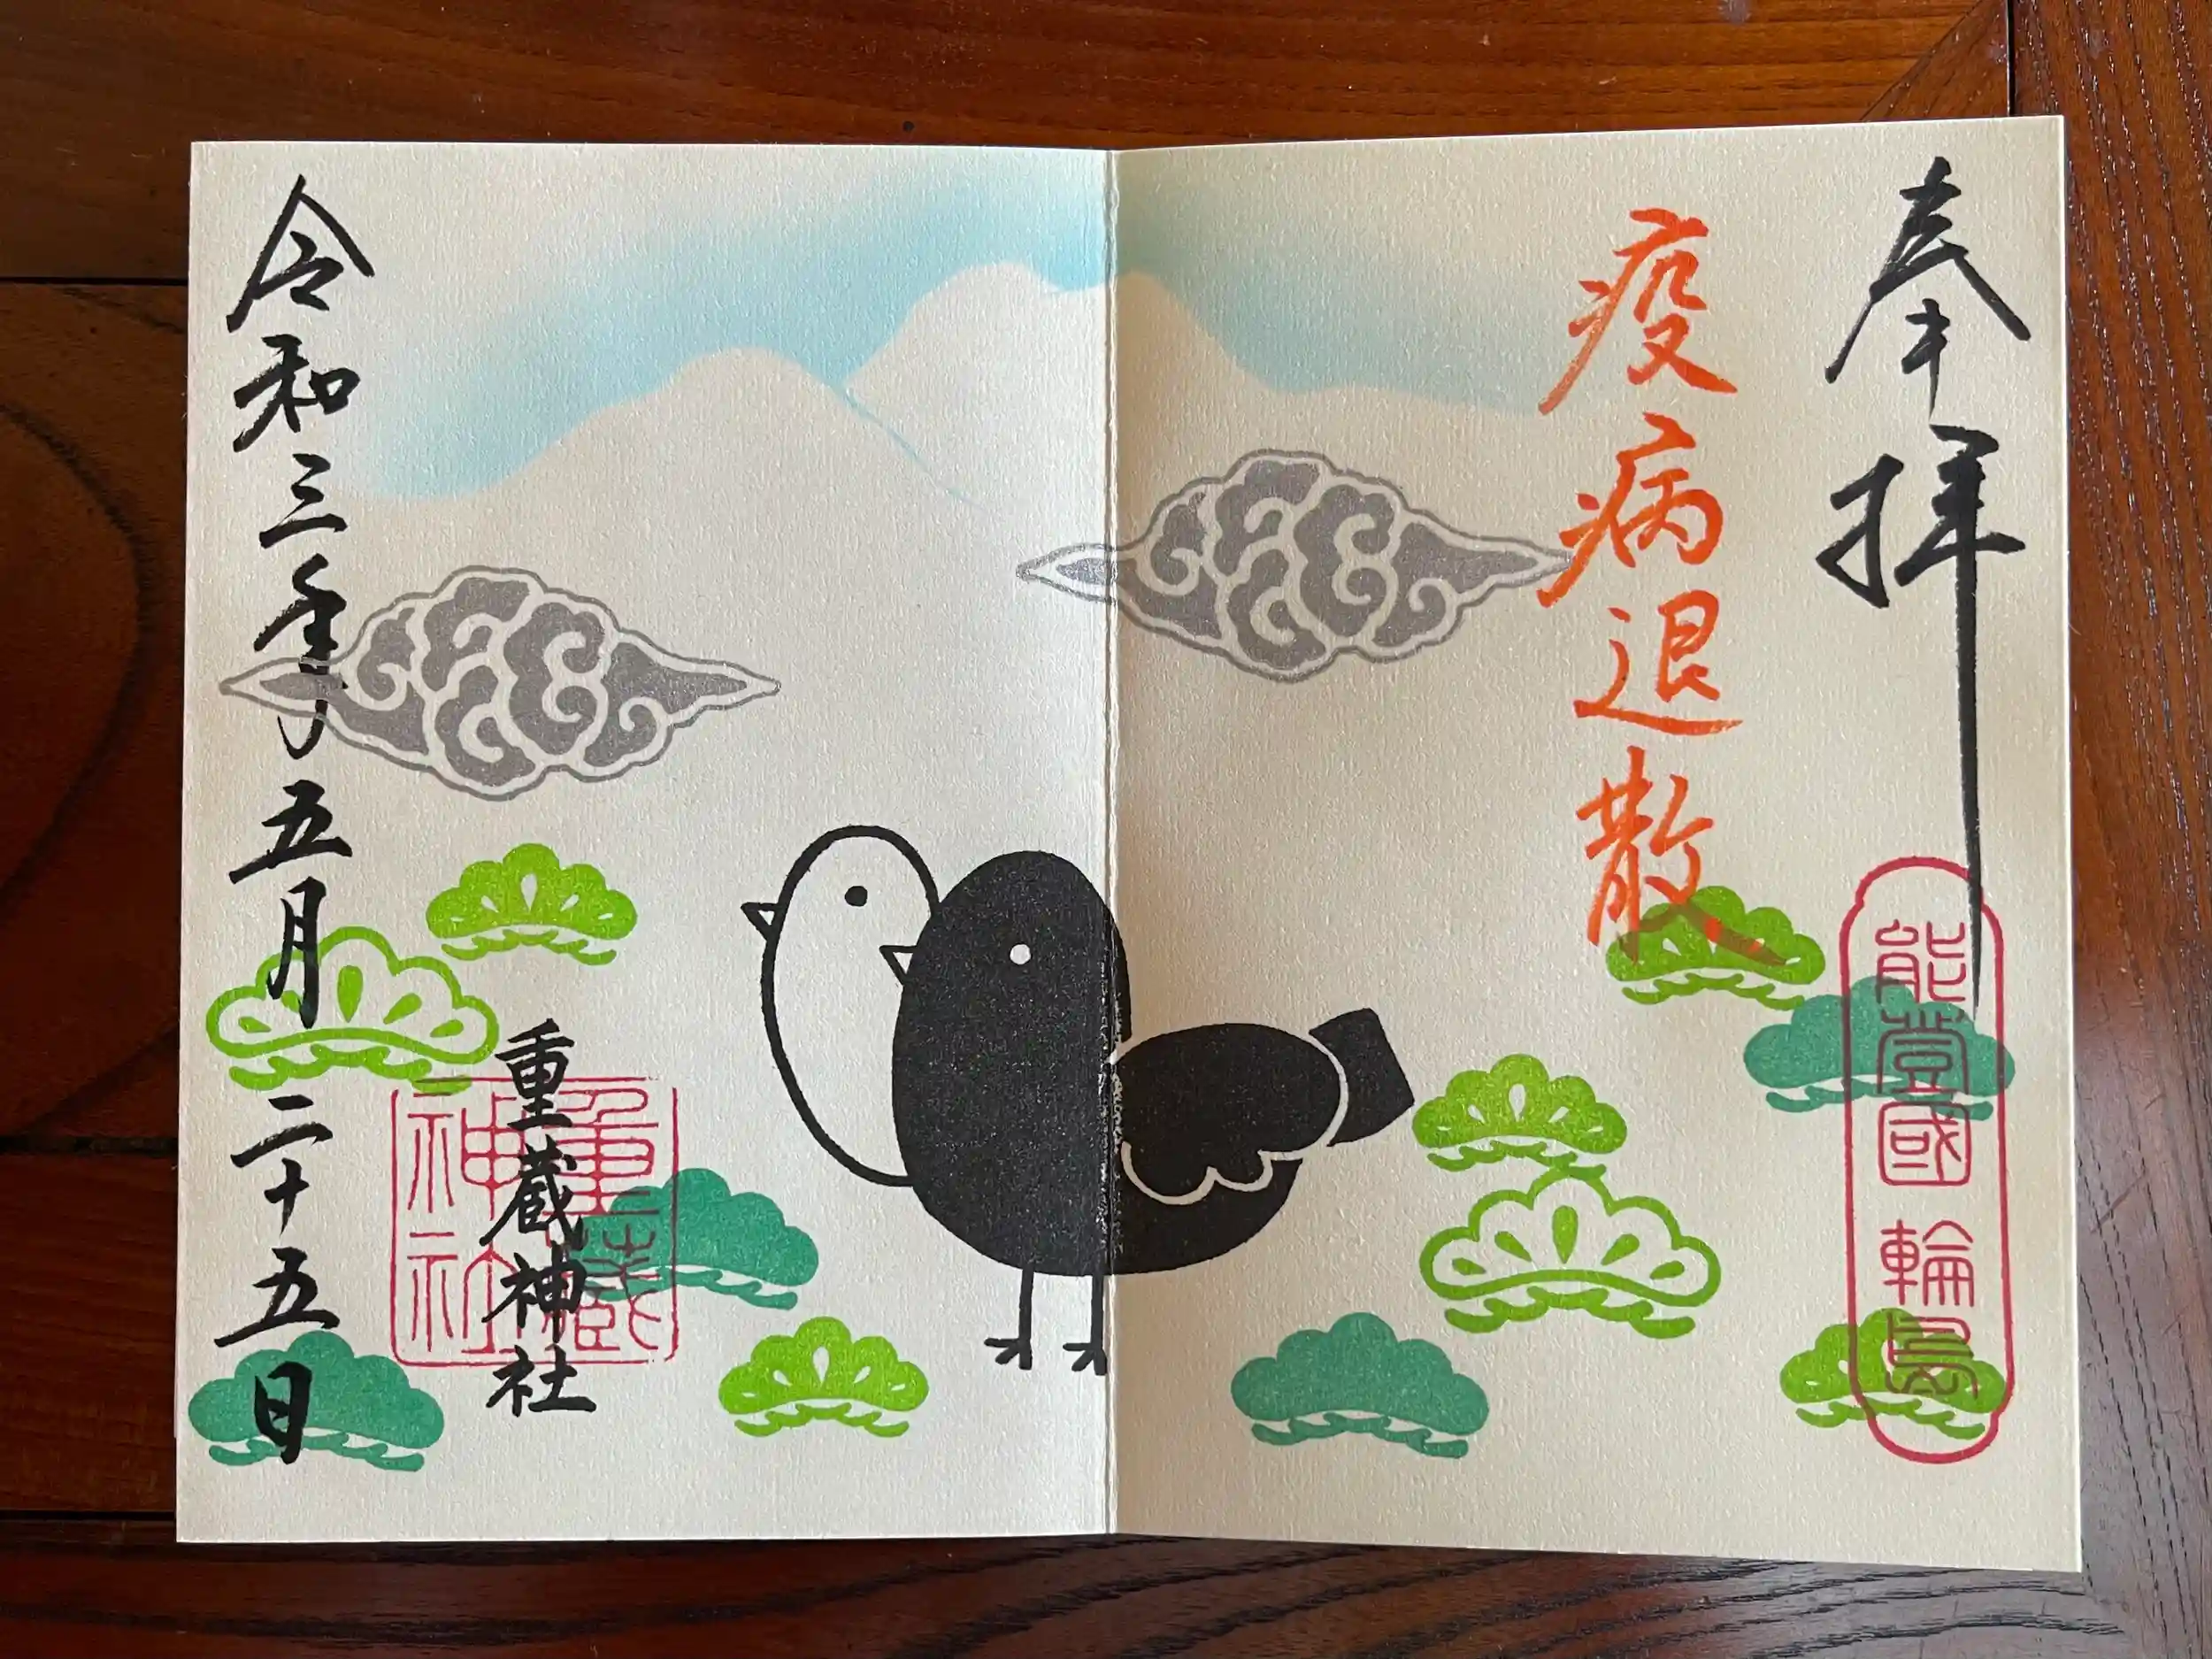 奉拝
能登國輪島
疫病退散
重蔵神社
重蔵神社
令和三年五月二十五日